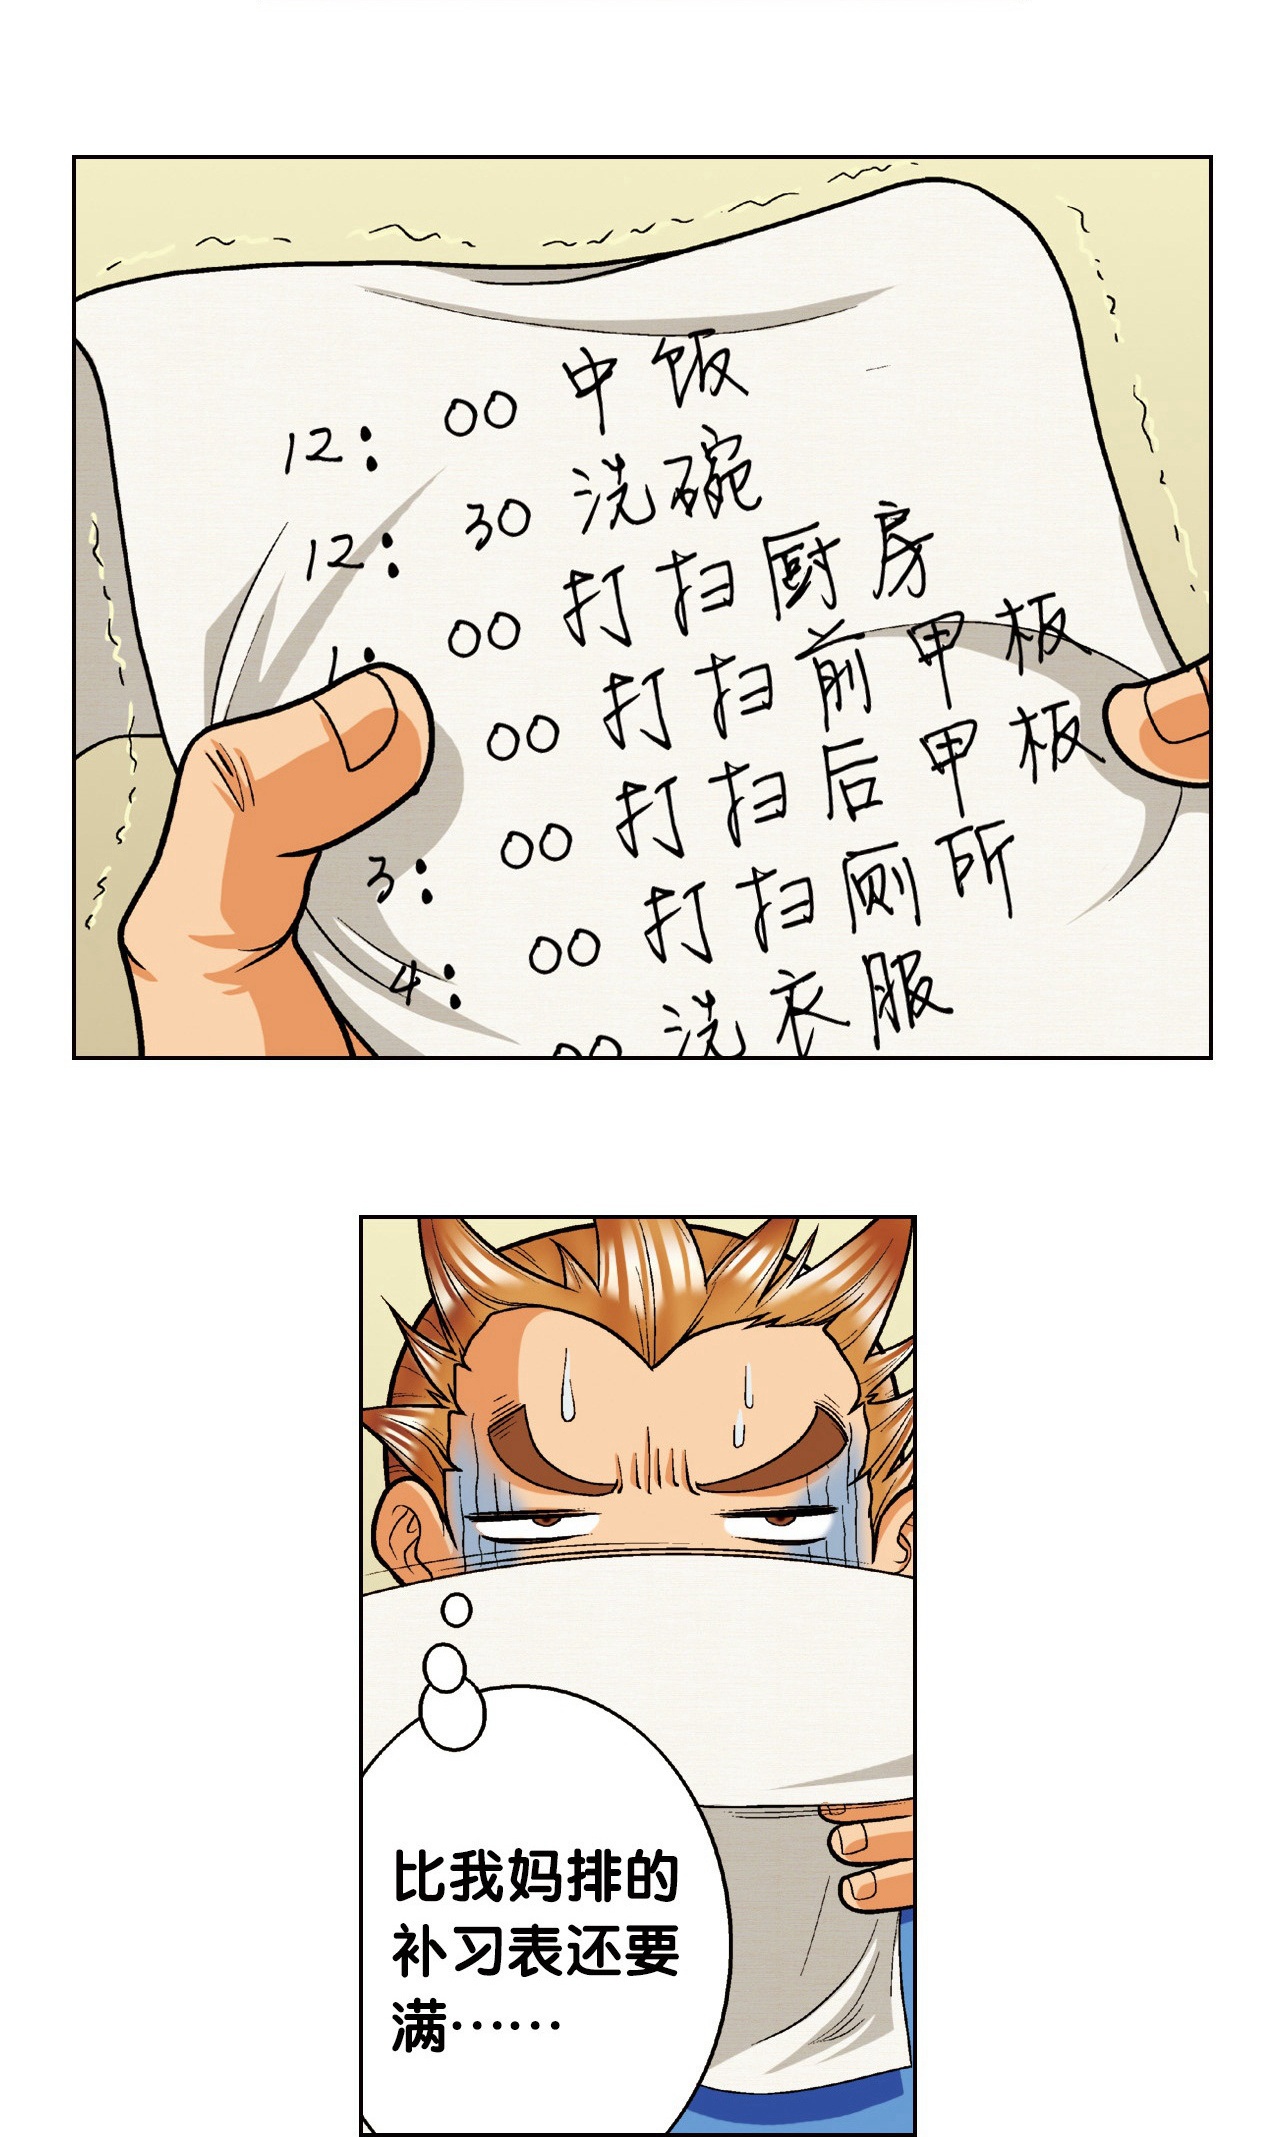 12:00 中饭
12:30 洗碗
1:00 打扫厨房
00 打扫前甲板
3:00 打扫后甲板
4:00 打扫厕所
00 洗衣服
比我妈排的
补习表还要
满……